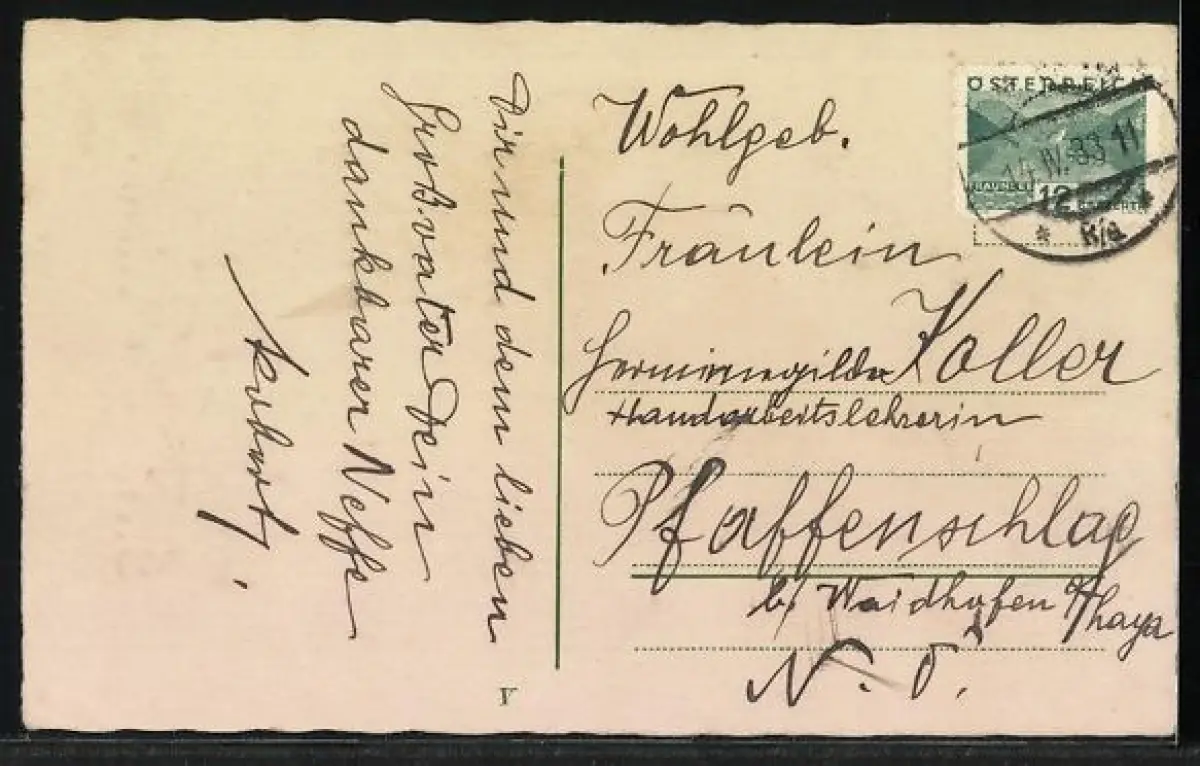 Dir und dem lieben
Großvater Dein
dankbarer Neffe
Wohlgeb.
Fräulein
Koller
Handarbeitslehrerin
Pfaffenschlag
b/ Waidhofen a/Thaya
N. Ö.
ÖSTERREICH
14.IV.33 11
12
* 8/a